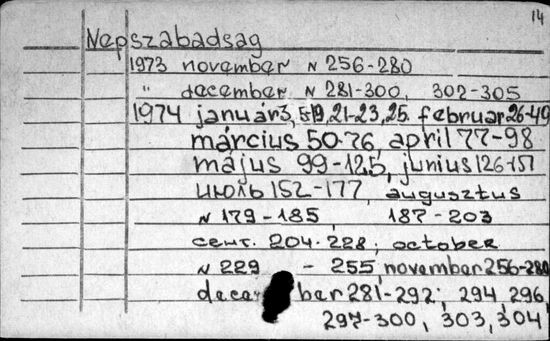 14
Nepszabadsag
1973 november N 256-280
" december N 281-300, 302-305
1974 január 3, 5-19, 21-23, 25. februar 26-49
március 50-76, april 77-98
május 99-125, junius 126-151
июль 152-177, augusztus
N 179-185, 187-203
сент. 204-228; october
N 229 - 255, november 256-280
december 281-292; 294 296,
297-300, 303, 304